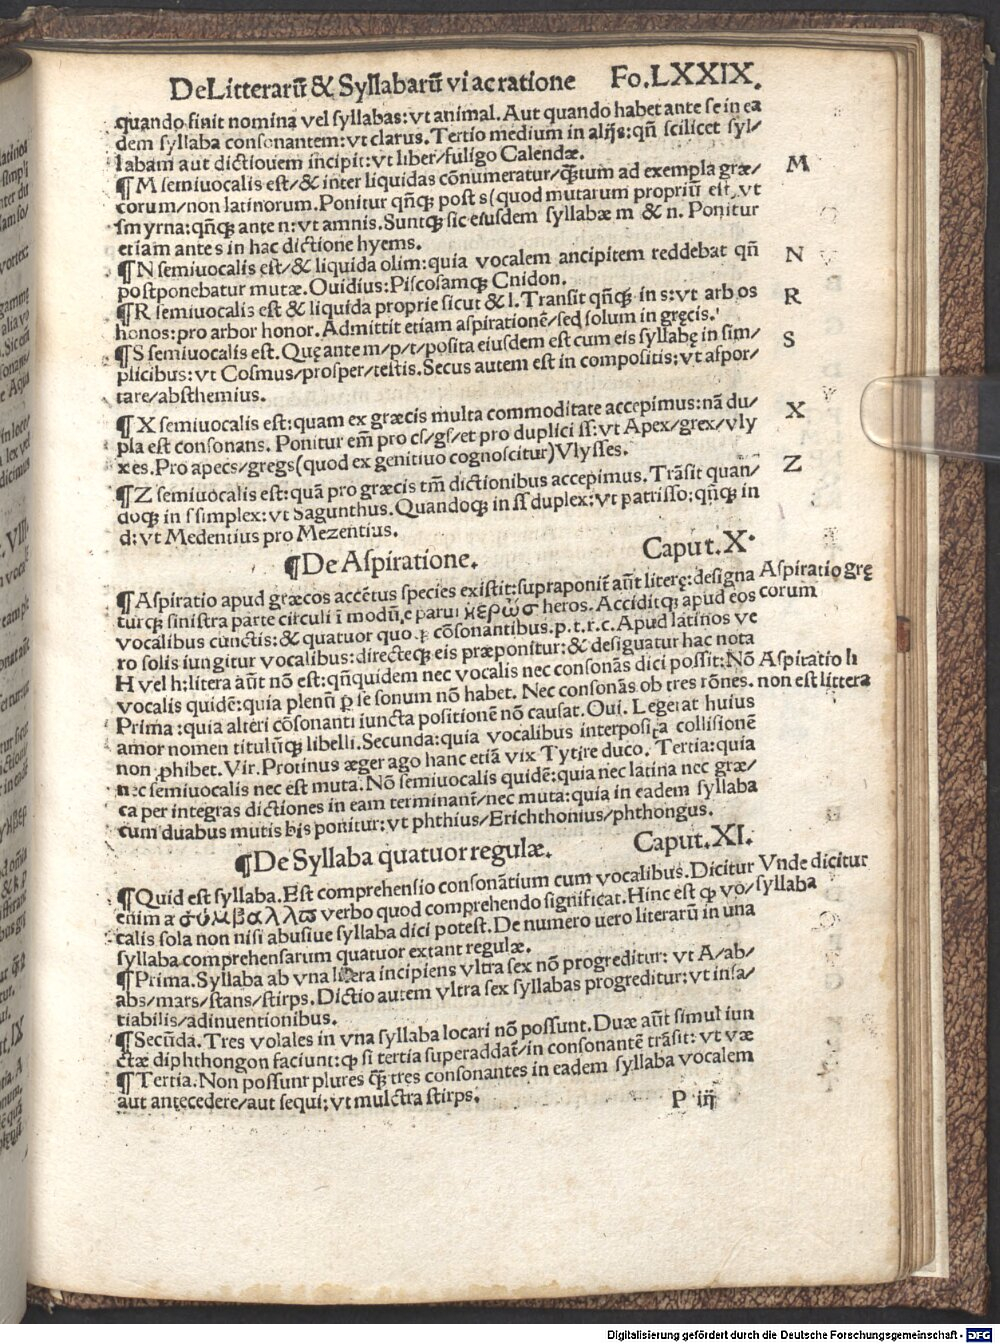 De Litterarū & Syllabarū vi ac ratione Fo. LXXIX.
quando finit nomina vel syllabas: vt animal. Aut quando habet ante se in ea
dem syllaba consonantem: vt clarus. Tertio medium in alijs: qñ scilicet syl/
labam aut dictiouem incipit: vt liber/fuligo Calendæ.
¶ M semiuocalis est/& inter liquidas cōnumeratur/q̄tum ad exempla græ/ M
corum/non latinorum. Ponitur qñq; post s (quod mutarum propriū est, vt
smyrna: qñq; ante n: vt amnis. Suntq; sic eiusdem syllabæ m & n. Ponitur
etiam ante s in hac dictione hyems.
¶ N semiuocalis est/& liquida olim: quia vocalem ancipitem reddebat qñ N
postponebatur mutæ. Ouidius: Piscosamq; Cnidon.
¶ R semiuocalis est & liquida proprie sicut & l. Transit qñq; in s: vt arbos R
honos: pro arbor honor. Admittit etiam aspirationē/sed solum in gręcis.
¶ S semiuocalis est. Quę ante m/p/t/posita eiusdem est cum eis syllabę in sim/ S
plicibus: vt Cosmus/prosper/testis. Secus autem est in compositis: vt aspor/
tare/absthemius.
¶ X semiuocalis est: quam ex græcis multa commoditate accepimus: nā du/ X
pla est consonans. Ponitur em̄ pro cs/gs/et pro duplici ss: vt Apex/grex/vly
xes. Pro apecs/gregs (quod ex genitiuo cognoscitur) Vlysses.
¶ Z semiuocalis est: quā pro græcis tm̄ dictionibus accepimus. Trāsit quan/ Z
doq; in s simplex: vt Sagunthus. Quandoq; in ss duplex: vt patrisso; qñq; in
d: vt Medentius pro Mezentius.
¶ De Aspiratione. Caput. X.
¶ Aspiratio apud græcos accētus species existit: supraponit̄ aūt literę: designa Aspiratio grę
turq; sinistra parte circuli i modū, e parui ἡερώσ heros. Acciditq; apud eos corum
vocalibus cunctis: & quatuor quoq; cōsonantibus. p. t. r. c. Apud latinos ve
ro solis iungitur vocalibus: directeq; eis præponitur: & designatur hac nota
H vel h: litera aūt nō est: qñquidem nec vocalis nec consonās dici possit: Nō Aspiratio h
vocalis quidē: quia plenū ꝑ se sonum nō habet. Nec consonās ob tres rōnes. non est littera
Prima: quia alteri cōsonanti iuncta positionē nō causat. Oui. Legerat huius
amor nomen titulūq; libelli. Secunda: quia vocalibus interposita collisionē
non ꝓhibet. Vir. Protinus æger ago hanc etiā vix Tytire duco. Tertia: quia
nec semiuocalis nec est muta. Nō semiuocalis quidē: quia nec latina nec græ/
ca per integras dictiones in eam terminant̄/nec muta: quia in eadem syllaba
cum duabus mutis bis ponitur: vt phthius/Erichthonius/phthongus.
¶ De Syllaba quatuor regulæ. Caput. XI.
¶ Quid est syllaba. Est comprehensio consonātium cum vocalibus. Dicitur Vnde dicitur
enim a σύμβαλλω verbo quod comprehendo significat. Hinc est ꝙ vo/ syllaba
calis sola non nisi abusiue syllaba dici potest. De numero uero literarū in una
syllaba comprehensarum quatuor extant regulæ.
¶ Prima. Syllaba ab vna litera incipiens vltra sex nō progreditur: vt A/ab/
abs/mars/stans/stirps. Dictio autem vltra sex syllabas progreditur: vt insa/
tiabilis/adinuentionibus.
¶ Secūda. Tres volales in vna syllaba locari nō possunt. Duæ aūt simul iun
ctæ diphthongon faciunt: ꝙ si tertia superaddat̄/in consonantē trāsit: vt væ
¶ Tertia. Non possunt plures q̄ tres consonantes in eadem syllaba vocalem
aut antecedere/aut sequi: vt mulctra stirps.
P iij
Digitalisierung gefördert durch die Deutsche Forschungsgemeinschaft - DFG